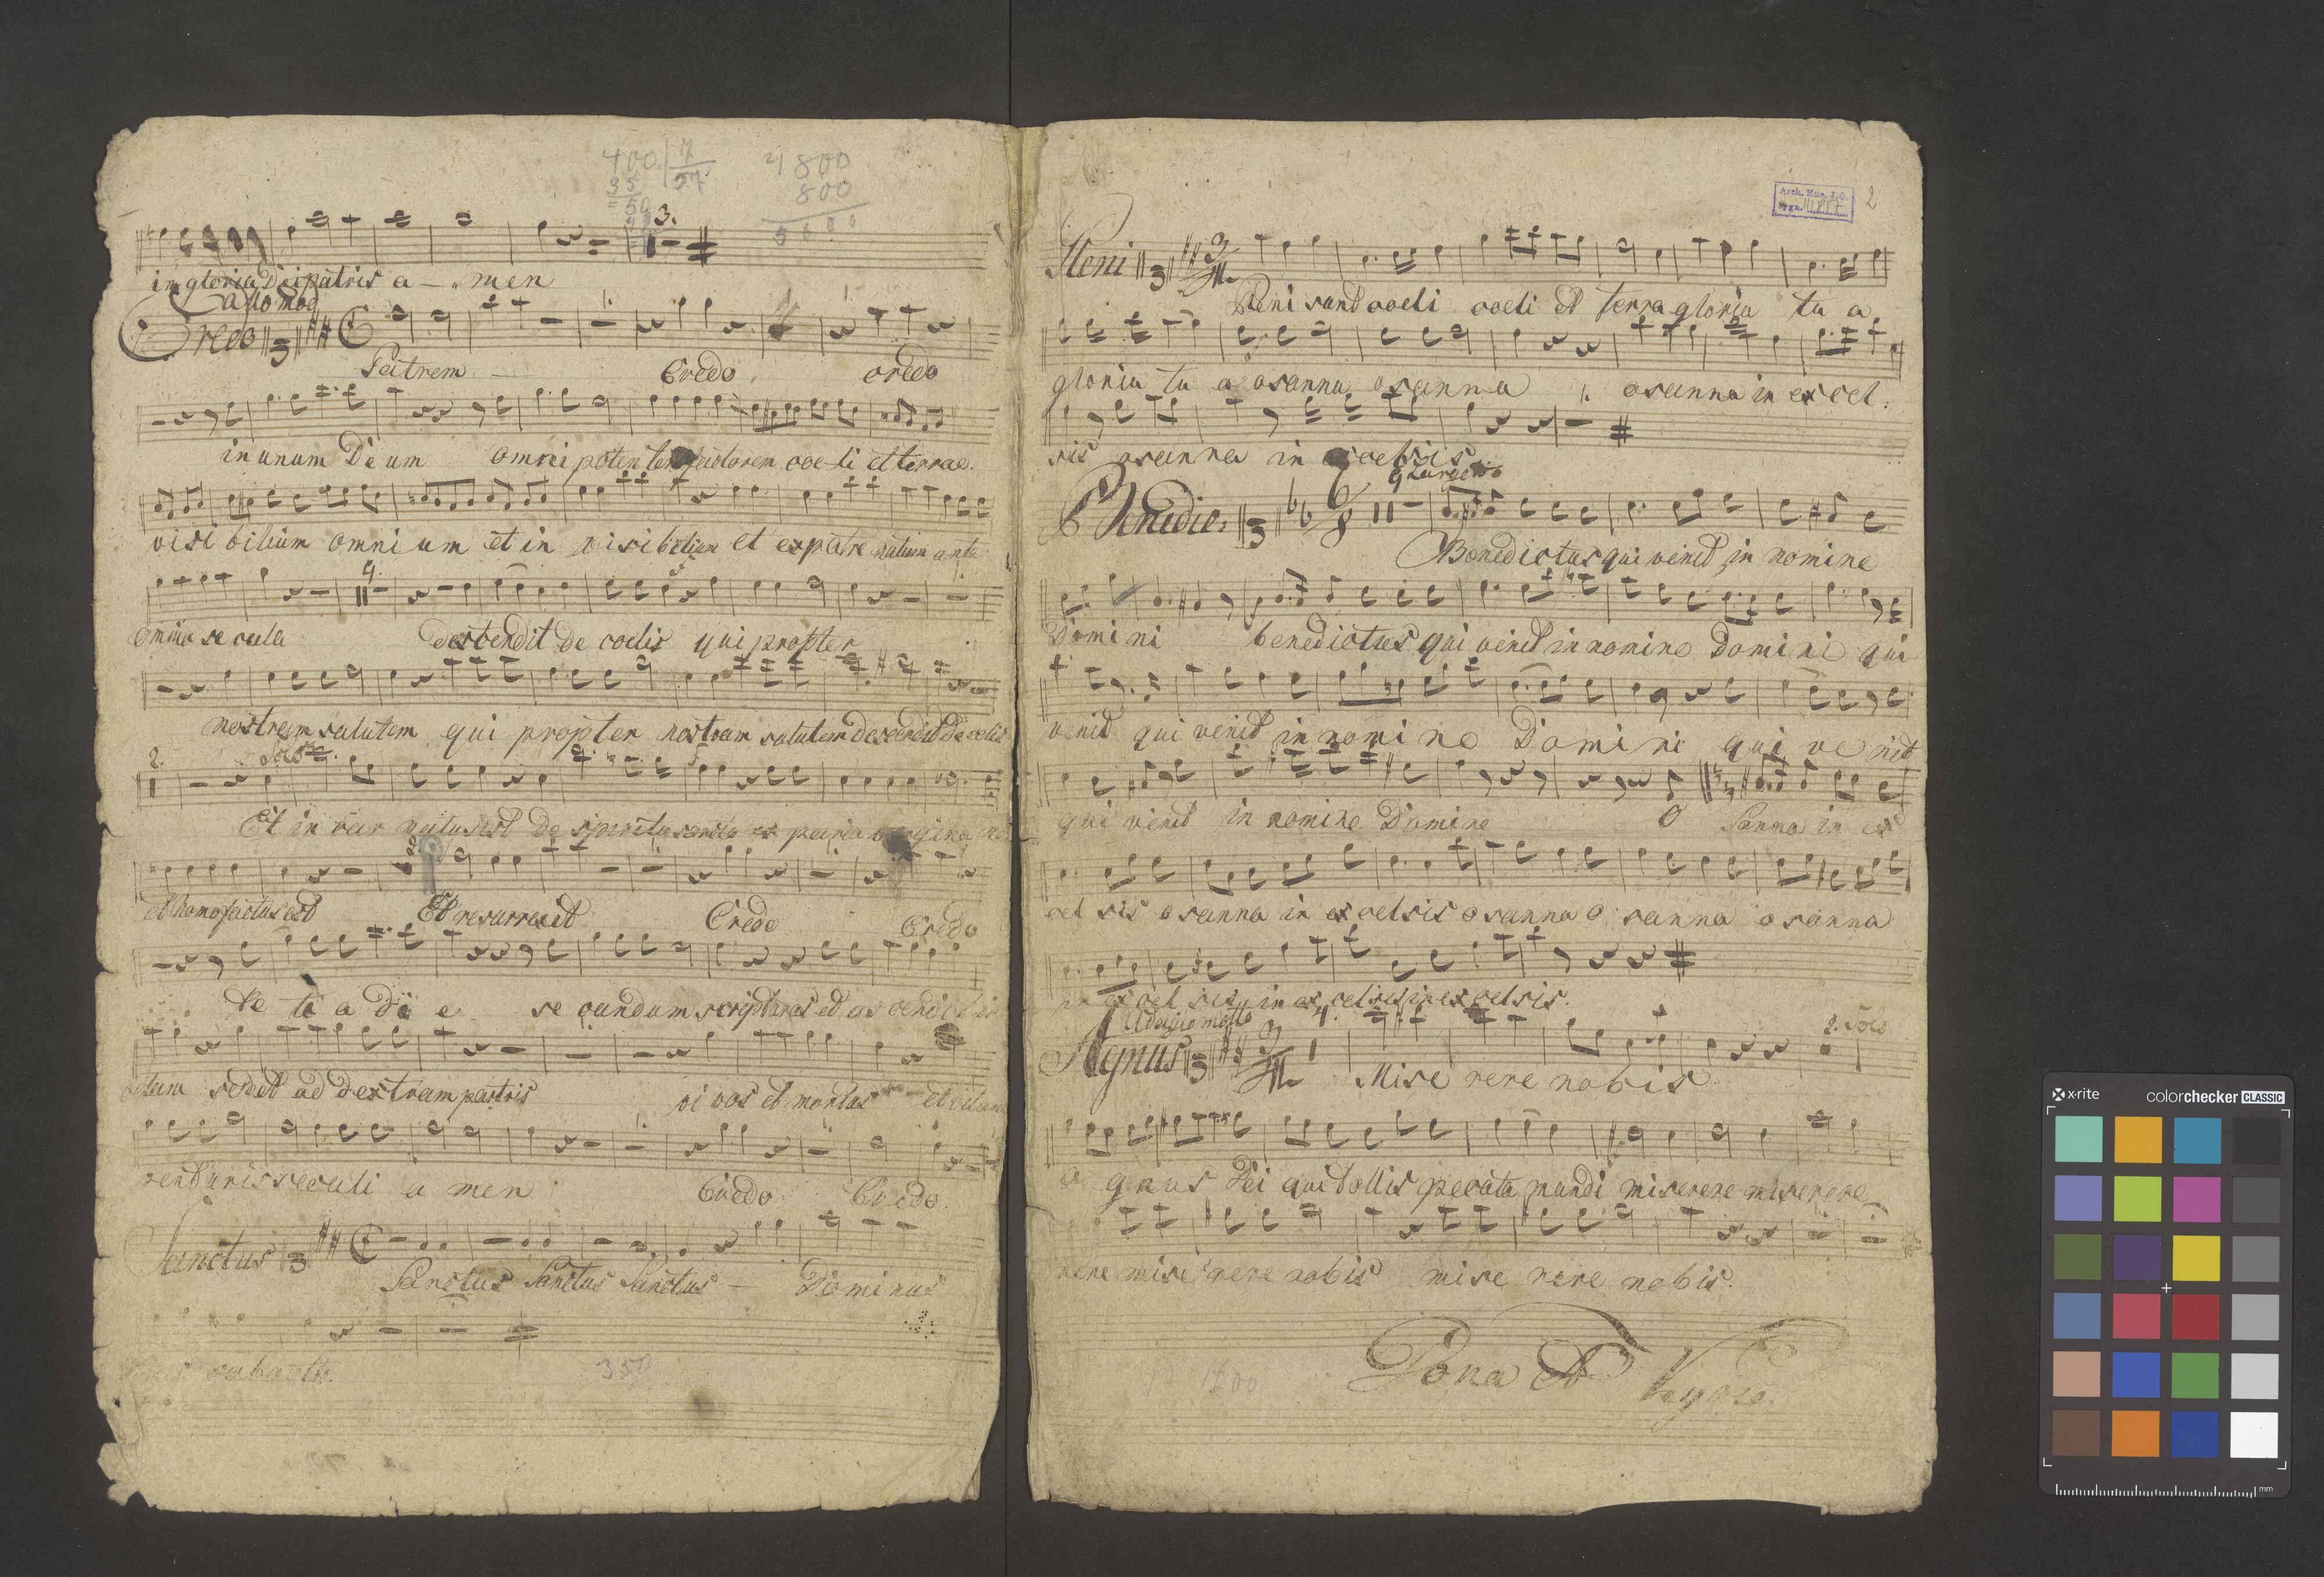 400 7 4800
35 57 800
50 5600
3.
in gloria Dei patris a - men
Credo all<sup>o</sup> mod
Patrem Credo credo
in unum Deum omnipotentem factorem coeli et terrae.
visi bilium omnium et in visibilium et ex patre natum ante
9.
omnia secula descendit de coelis qui propter
nostrem salutem qui propter nostram salutem descendit de coelis
2. Solo
Et in car natus est de spiritu sancto ex
et homo factus est Et resurrexit Credo Credo
te ti a Di e se cundum scripturas et as cendit in
sedet ad dextram patris vi vos et mortus et vitam
venturis seculi a men Credo Credo
Sanctus
Sanctus Sanctus Sanctus - Dominus
sabaoth.
350
Arch. Mus. J. G.
2
Pleni 3
Pleni sund coeli coeli et terra gloria tu a
gloria tu a osanna osanna osanna in excel:
sis osanna in excelsis
Benedic: 6/8 9 Largetto
Benedictus qui venit in nomine
Domini benedictus qui venit in nomine Domini qui
venit qui venit in nomine Domini qui ve nit
qui venit in nomine Domine O Sanna in ex
cel sis osanna in excelsis osanna o sanna o sanna
in ex cel sis in ex celsis in ex celsis.
Agnus Adagio molto 3 2. Solo
Mise rere nobis
a gnus Dei qui tollis pecata mundi miserere miserere
rere mise rere nobis mise rere nobis.
Dona